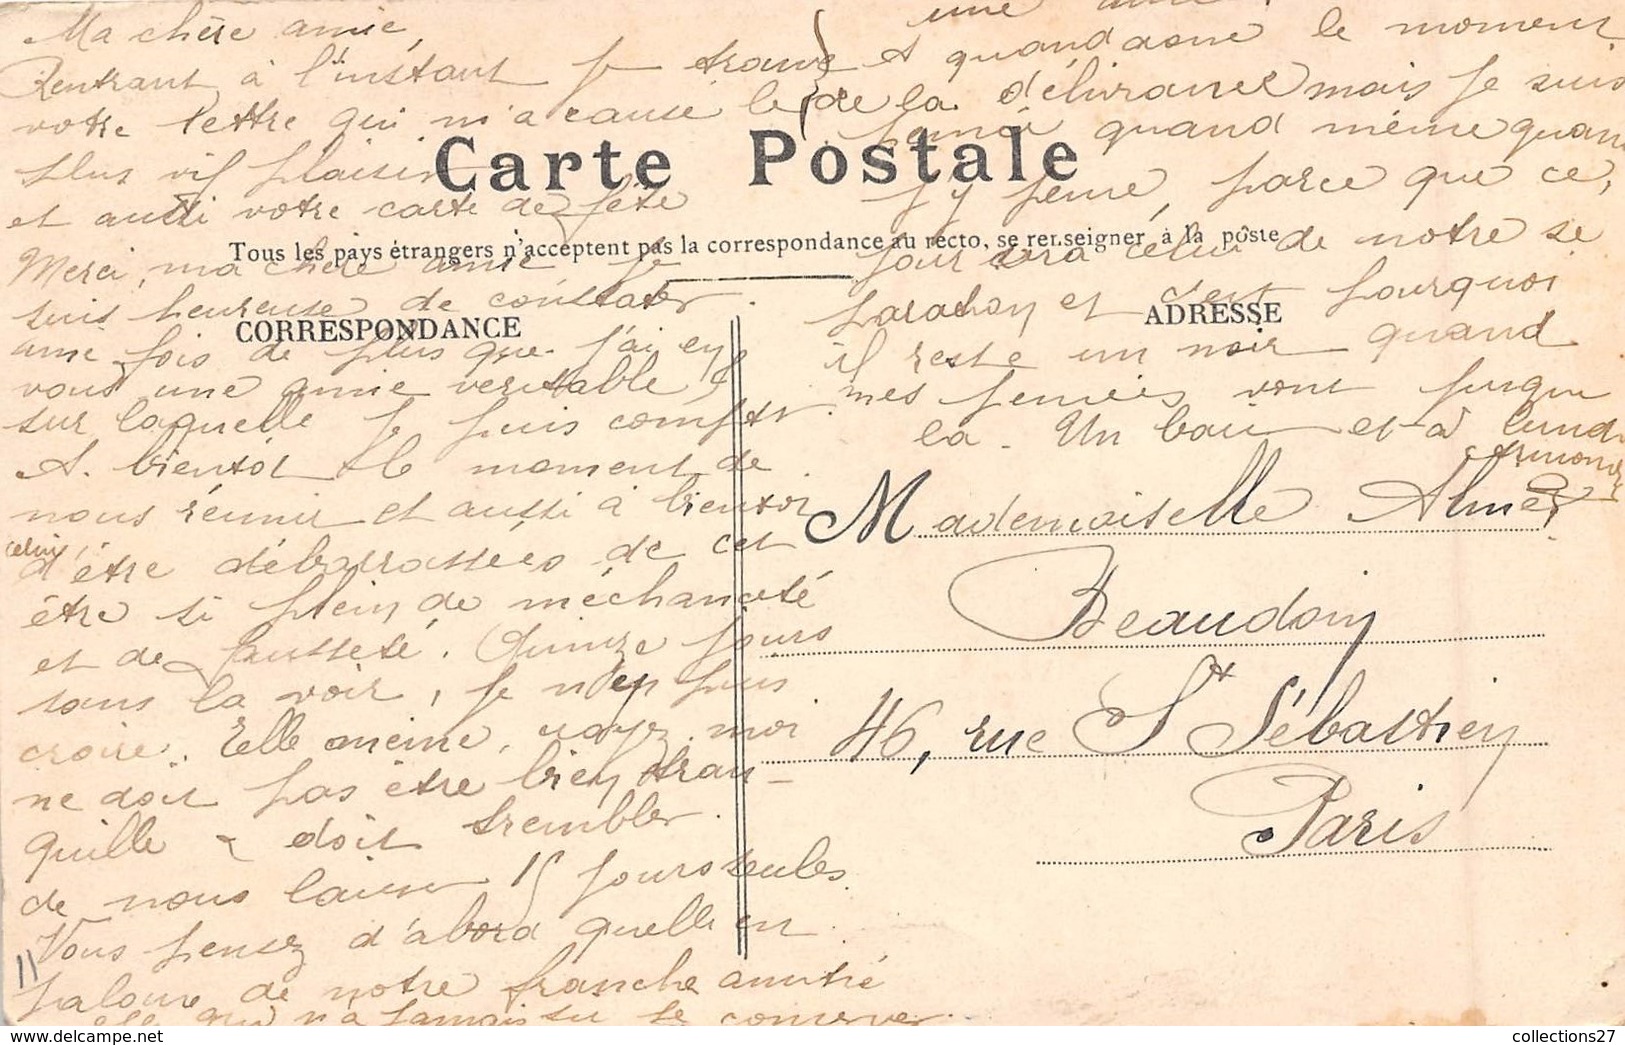 Ma chère amie,
Rentrant à l'instant je trouve
votre lettre qui m'a causé le
plus vif plaisir
et aussi votre carte de fête
Merci, ma chère amie je
suis heureuse de constater
une fois de plus que j'ai en
vous une amie véritable
sur laquelle je puis compter
A bientôt le moment de
nous réunir et aussi à bientôt
celui
d'être débarrassées de cet
être si plein de méchanceté
et de fausseté. Quinze jours
sans la voir, je n'en puis
croire. Elle même, voyez moi
ne doit pas être bien tran-
quille doit trembler
de nous laisser 15 jours seules
Vous pensez d'abord qu'elle en
jalouse de notre franche amitié
elle qui n'a jamais su se conserver
une
et quand donc le moment
de la délivrance mais je suis
quand même quand
j'y pense, parce que ce
jour sera celui de notre se
paration et c'est pourquoi
il reste un noir quand
mes pensées vont jusque
là. Un baiser et à lundi
Carte Postale
Tous les pays étrangers n'acceptent pas la correspondance au recto, se renseigner à la poste
CORRESPONDANCE
ADRESSE
Mademoiselle
Beaudoin
46, rue St Sébastien
Paris
11
collections27